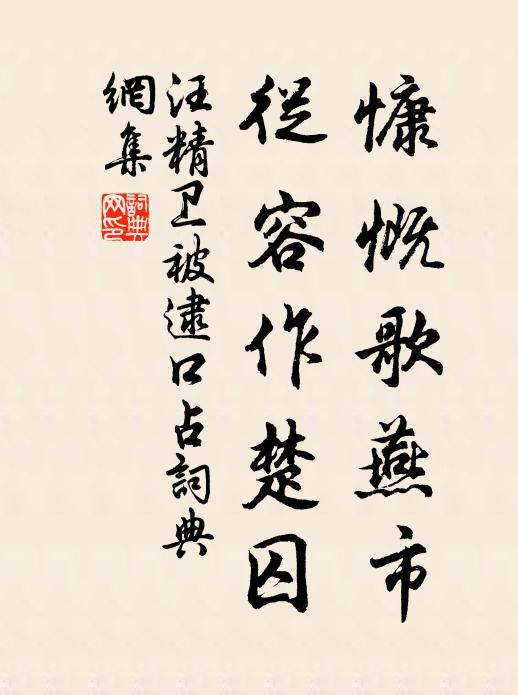 慷慨歌燕市
從容作楚囚
汪精卫被逮口占詞典
網集
詞典网印